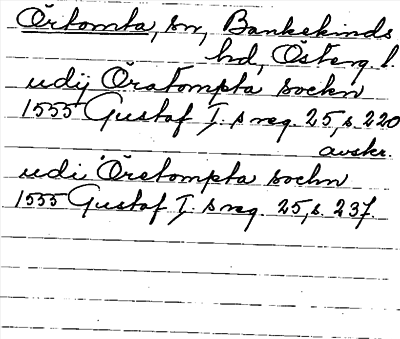 Örtomta, sn, Bankekinds
hd, Österg. l.
udij Öratompta sockn
1555 Gustaf I:s reg. 25, s. 220
avskr.
udi Öretompta sochn
1555 Gustaf I:s reg. 25, s. 237.